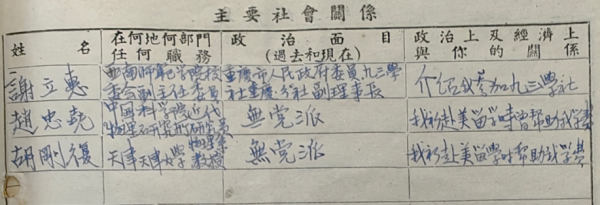 主要社會關係
姓名 在何地何部門任何職務 政治面目(過去和現在) 政治上及經濟上與你的關係
謝立惠 西南師範学院校委会副主任委員 重慶市人民政府委員九三學社重慶分社副理事長 介紹我參加九三學社
趙忠堯 中国科学院近代物理研究所研究員 無党派 我初赴美留学時曾帮助我学費
胡剛復 天津天津大學物理系教授 無党派 我初赴美留学時帮助我学費